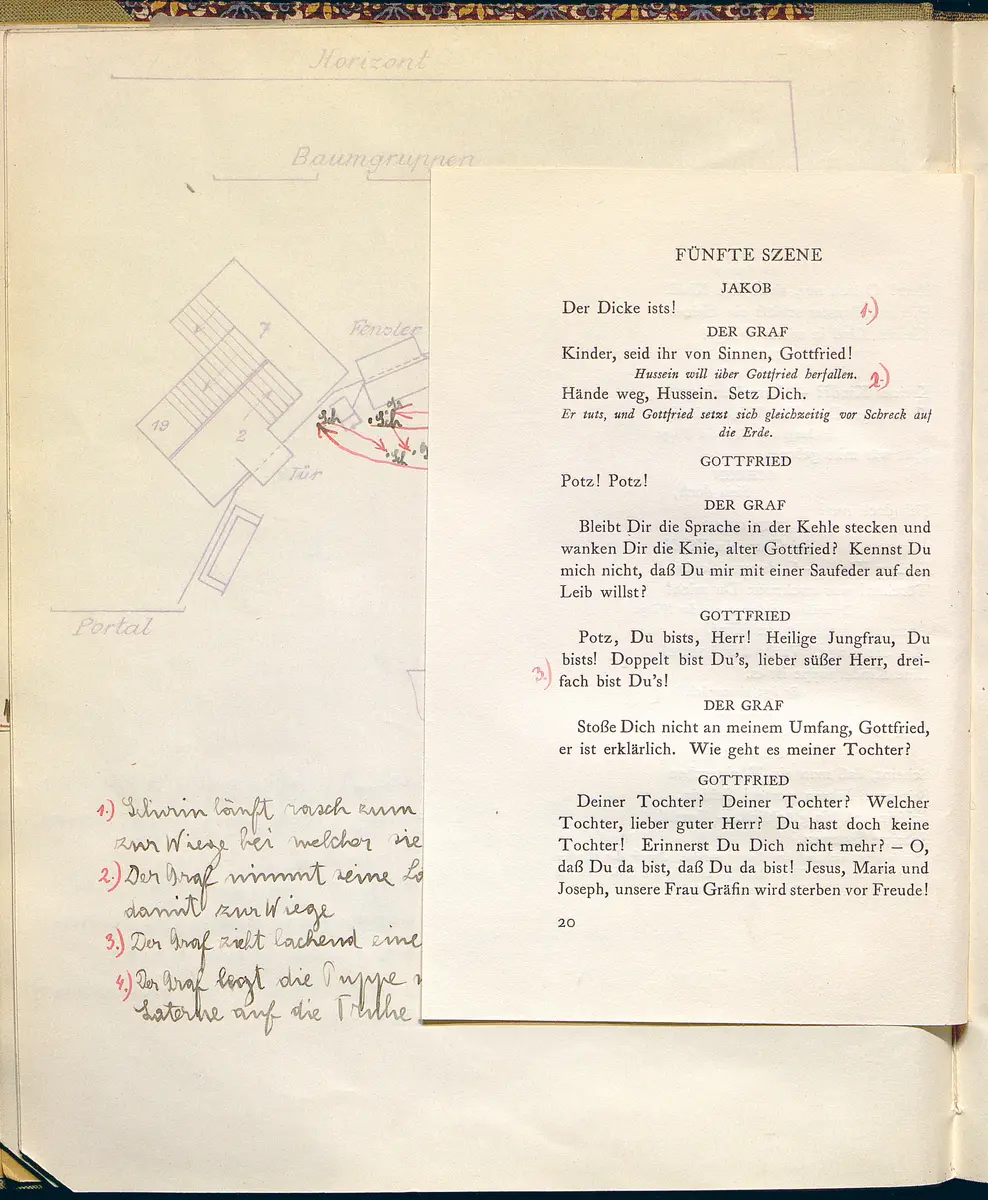 Horizont
Baumgruppen
7
Fenster
19
2
Sch
Tür
Portal
1.) Schirin läuft rasch zum
zur Wiege bei welcher sie
2.) Der Graf nimmt seine
damit zur Wiege
3.) Der Graf zieht lachend eine
4.) Der Graf legt die Puppe
Laterne auf die Truhe
FÜNFTE SZENE
JAKOB
Der Dicke ists! 1.)
DER GRAF
Kinder, seid ihr von Sinnen, Gottfried!
Hussein will über Gottfried herfallen.
Hände weg, Hussein. Setz Dich. 2.)
Er tuts, und Gottfried setzt sich gleichzeitig vor Schreck auf
die Erde.
GOTTFRIED
Potz! Potz!
DER GRAF
Bleibt Dir die Sprache in der Kehle stecken und
wanken Dir die Knie, alter Gottfried? Kennst Du
mich nicht, daß Du mir mit einer Saufeder auf den
Leib willst?
GOTTFRIED
Potz, Du bists, Herr! Heilige Jungfrau, Du
bists! Doppelt bist Du's, lieber süßer Herr, drei-
3.) fach bist Du's!
DER GRAF
Stoße Dich nicht an meinem Umfang, Gottfried,
er ist erklärlich. Wie geht es meiner Tochter?
GOTTFRIED
Deiner Tochter? Deiner Tochter? Welcher
Tochter, lieber guter Herr? Du hast doch keine
Tochter! Erinnerst Du Dich nicht mehr? — O,
daß Du da bist, daß Du da bist! Jesus, Maria und
Joseph, unsere Frau Gräfin wird sterben vor Freude!
20